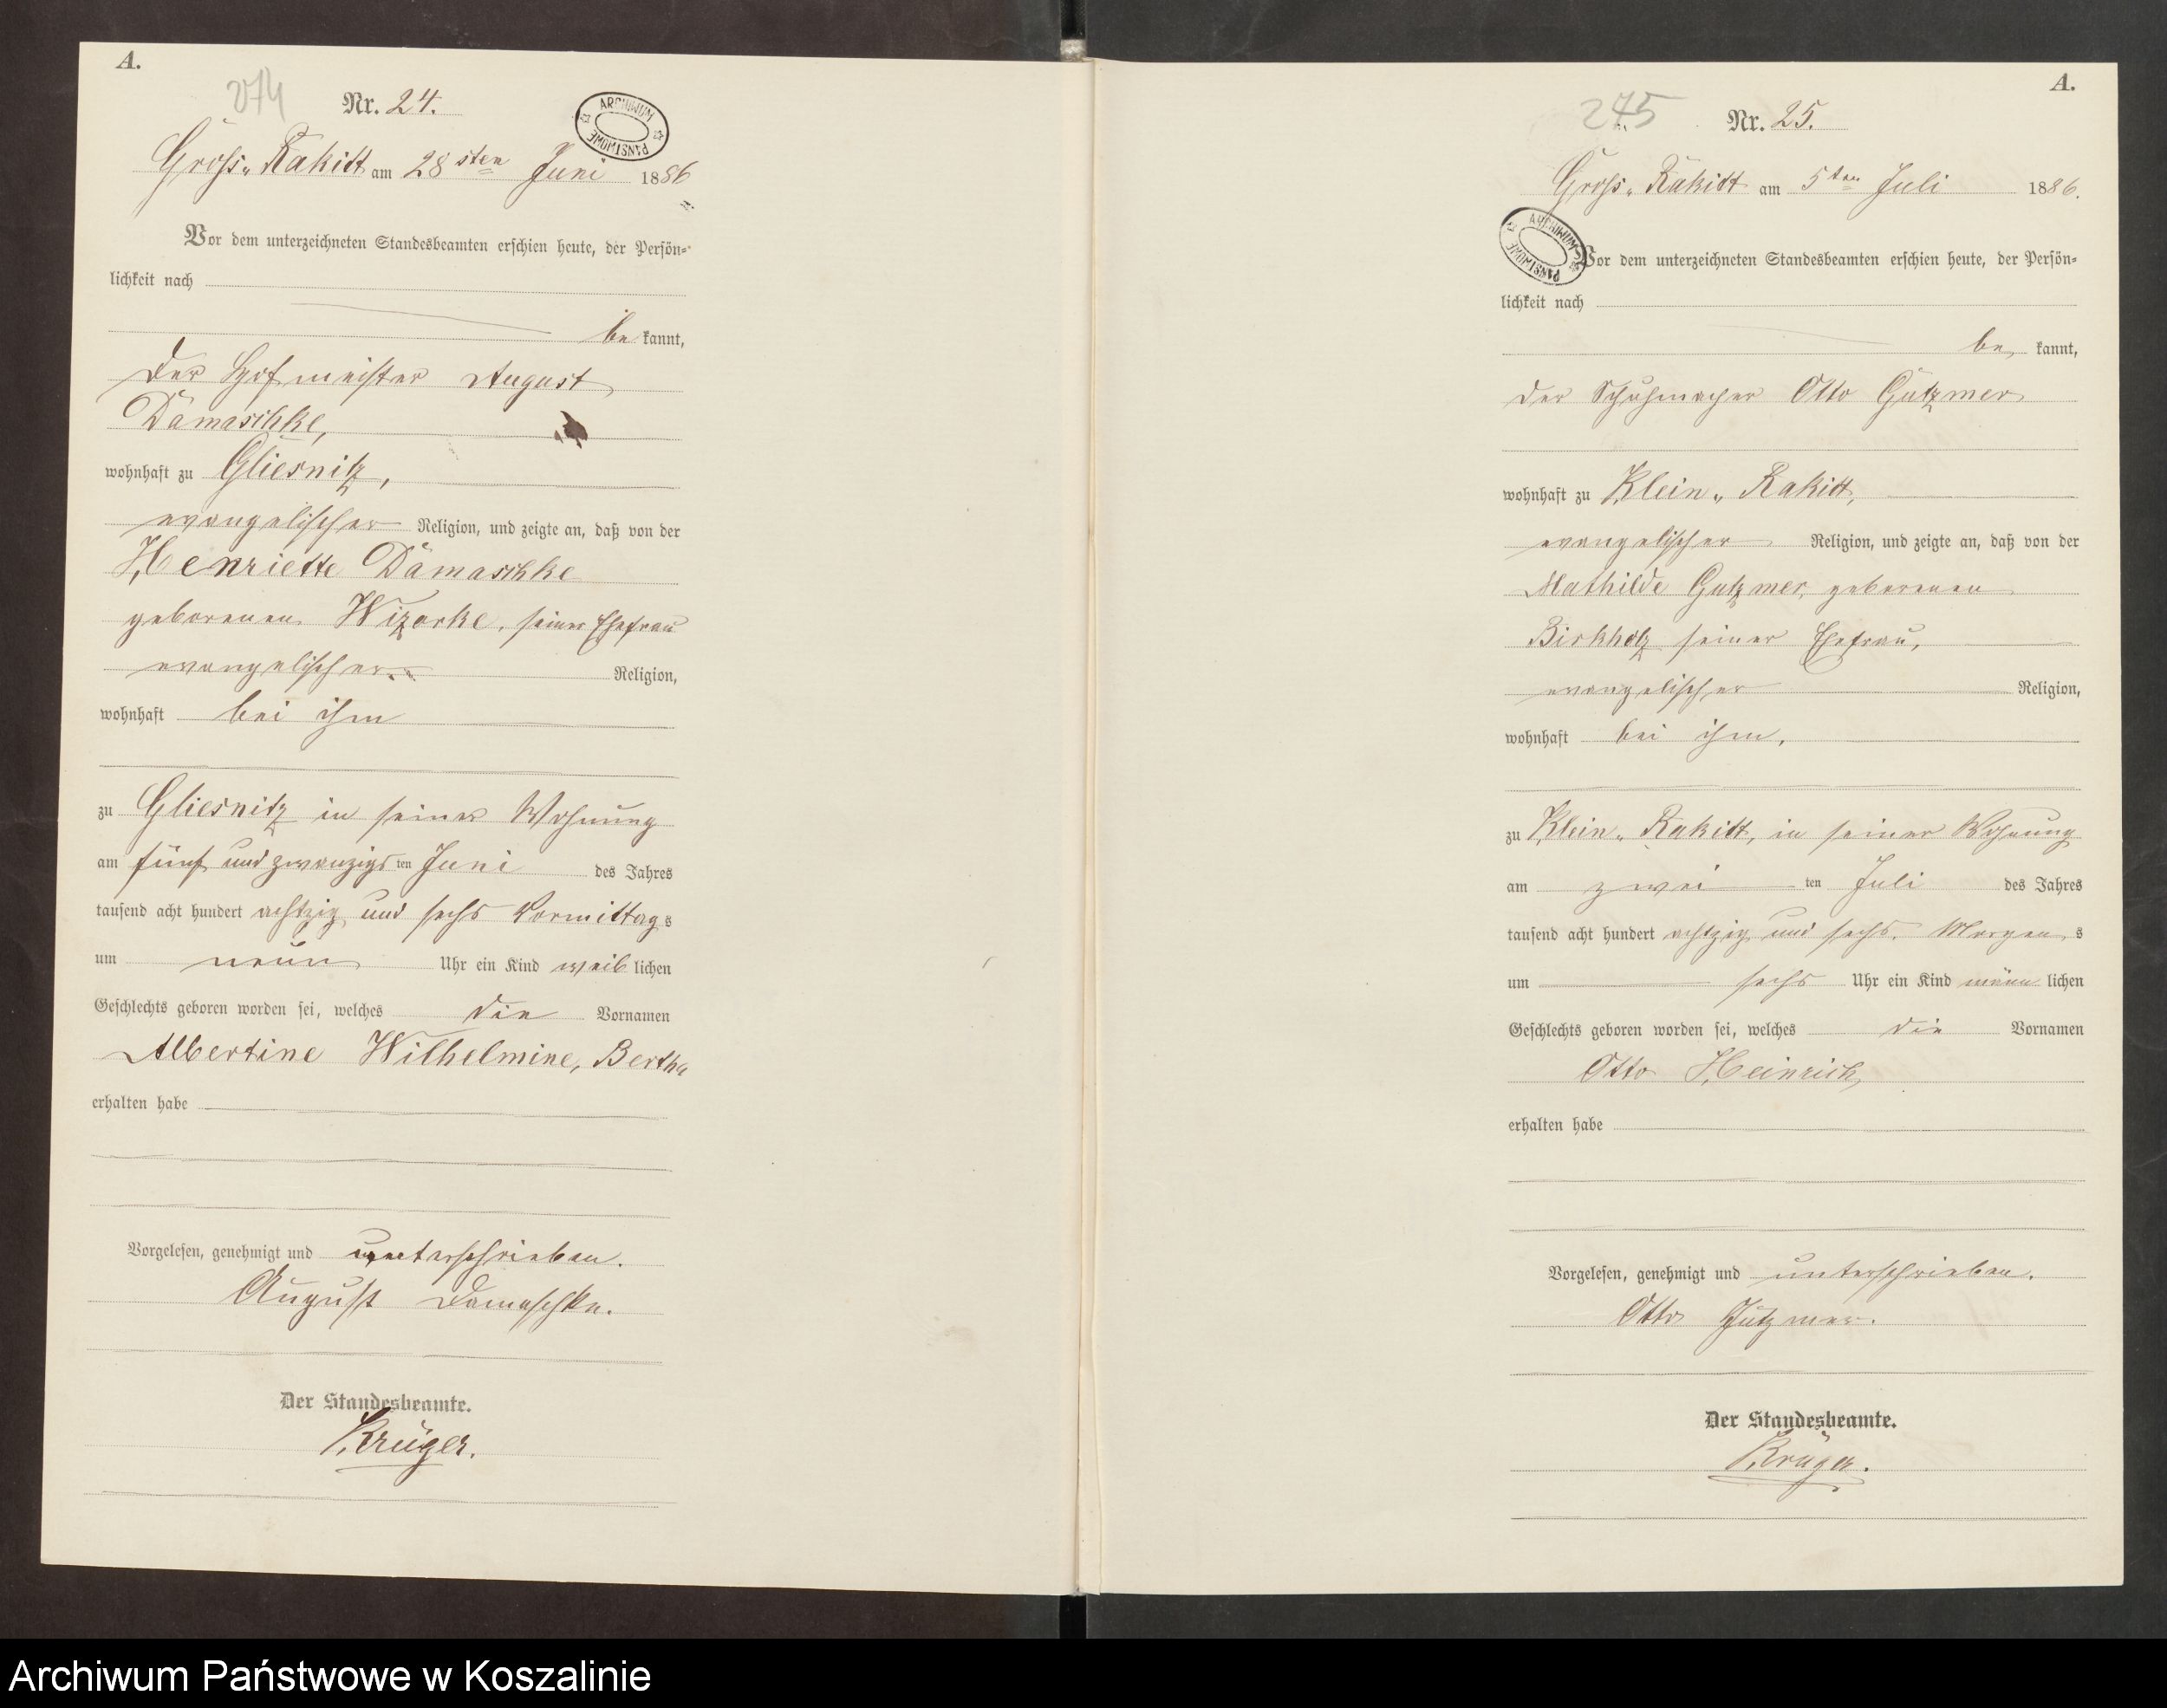 A.
274
Nr. 24.
ARCHIWUM PAŃSTWOWE
Gross-Rakitt am 28sten Juni 1886
Vor dem unterzeichneten Standesbeamten erschien heute, der Persön-
lichkeit nach
be kannt,
der Hofmeister August
Damaschke,
wohnhaft zu Gliesnitz,
evangelischer Religion, und zeigte an, daß von der
Henriette Damaschke
geborenen Wizorke, seiner Ehefrau
evangelischer Religion,
wohnhaft bei ihm
zu Gliesnitz in seiner Wohnung
am fünf und zwanzigs ten Juni des Jahres
tausend acht hundert achtzig und sechs Vormittag s
um neun Uhr ein Kind weib lichen
Geschlechts geboren worden sei, welches die Vornamen
Albertine Wilhelmine, Bertha
erhalten habe
Vorgelesen, genehmigt und unterschrieben.
August Damaschke.
Der Standesbeamte.
Krüger.
A.
275
Nr. 25.
Gross-Rakitt am 5ten Juli 1886.
ARCHIWUM PAŃSTWOWE
Vor dem unterzeichneten Standesbeamten erschien heute, der Persön-
lichkeit nach
be kannt,
der Schuhmacher Otto Gutzmer
wohnhaft zu Klein-Rakitt,
evangelischer Religion, und zeigte an, daß von der
Mathilde Gutzmer, geborenen
Birkholz seiner Ehefrau,
evangelischer Religion,
wohnhaft bei ihm,
zu Klein-Rakitt, in seiner Wohnung
am zwei ten Juli des Jahres
tausend acht hundert achtzig und sechs. Morgen s
um sechs Uhr ein Kind männ lichen
Geschlechts geboren worden sei, welches die Vornamen
Otto Heinrich
erhalten habe
Vorgelesen, genehmigt und unterschrieben.
Otto Gutzmer.
Der Standesbeamte.
Krüger.
Archiwum Państwowe w Koszalinie